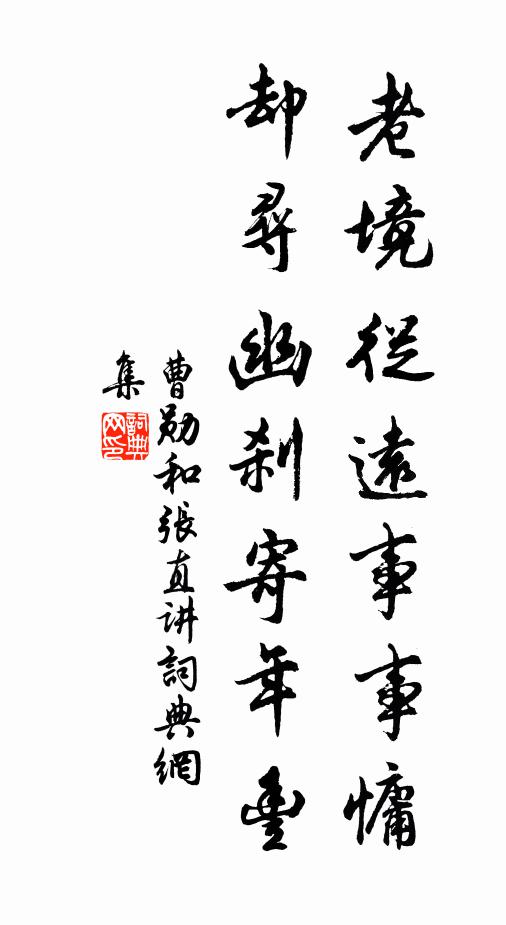 老境從遠事事慵
却尋幽刹寄年豐
曹勛和張直讲詞典網
集
詞典网印